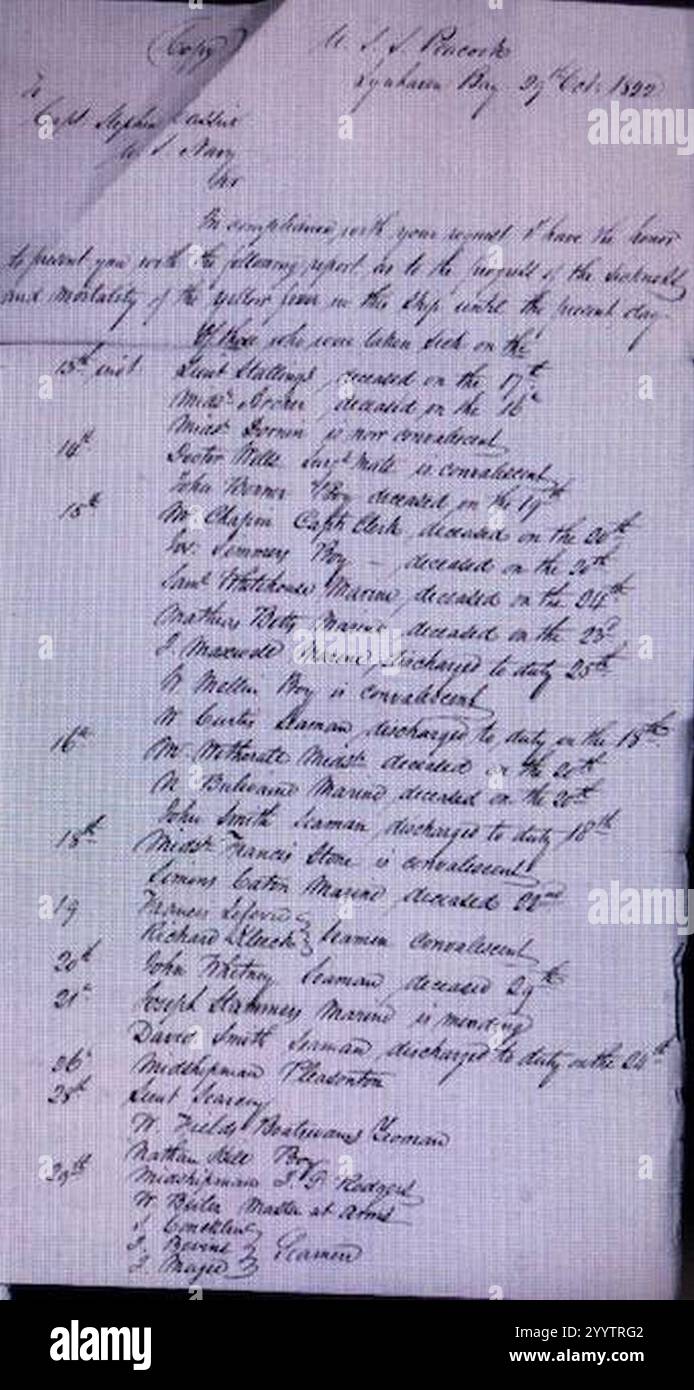 (Copy)
U. S. S. Peacock
Lynhaven Bay 29th Oct. 1822
To
Capt. Stephen Cassin
U. S. Navy
Sir
In compliance with your request, I have the honor
to present you with the following report, as to the progress of the sickness
and mortality of the yellow fever in this Ship until the present day
Of those who were taken sick on the
13th inst. Lieut Stallings, deceased on the 17th
Mids. deceased on the 16th
Mids. Dornin is now convalescent
14th Doctor Wells Surgs Mate is convalescent
John Boy deceased on the 19th
15th Mr Chapin Capts Clerk, deceased on the 20th
Jos. Simmers Boy – deceased on the 20th
Saml Whitehouse Marine, deceased on the 24th
Mathias Betts Marine, deceased on the 23d
J. Maxwell Marine, discharged to duty 25th
W Mellin Boy is convalescent
W Curtis Seaman, discharged to duty on the 18th
16th Mr Midsh. deceased on the 20th
N Marine, deceased on the 20th
John Smith Seaman, discharged to duty 18th
18th Midsh. Francis Stone is convalescent
Simons Eaton Marine, deceased 22nd
19 Francis Lefevre
Richard } Seamen convalescent
20th John Whitney Seaman, deceased 29th
21st Joseph Stammers Marine is mending
David Smith Seaman, discharged to duty on the 24th
26th Midshipman Pleasonton
28th Lieut
W. Fields Boatswains Yeoman
Nathan Boy
29th Midshipman Rodgers
W. Beiler Master at Arms
J. Concklin
J. Bevins } Seamen
J. Magee
alamy
alamy
a
a
a
alamy
Image ID: 2YYTRG2
www.alamy.com